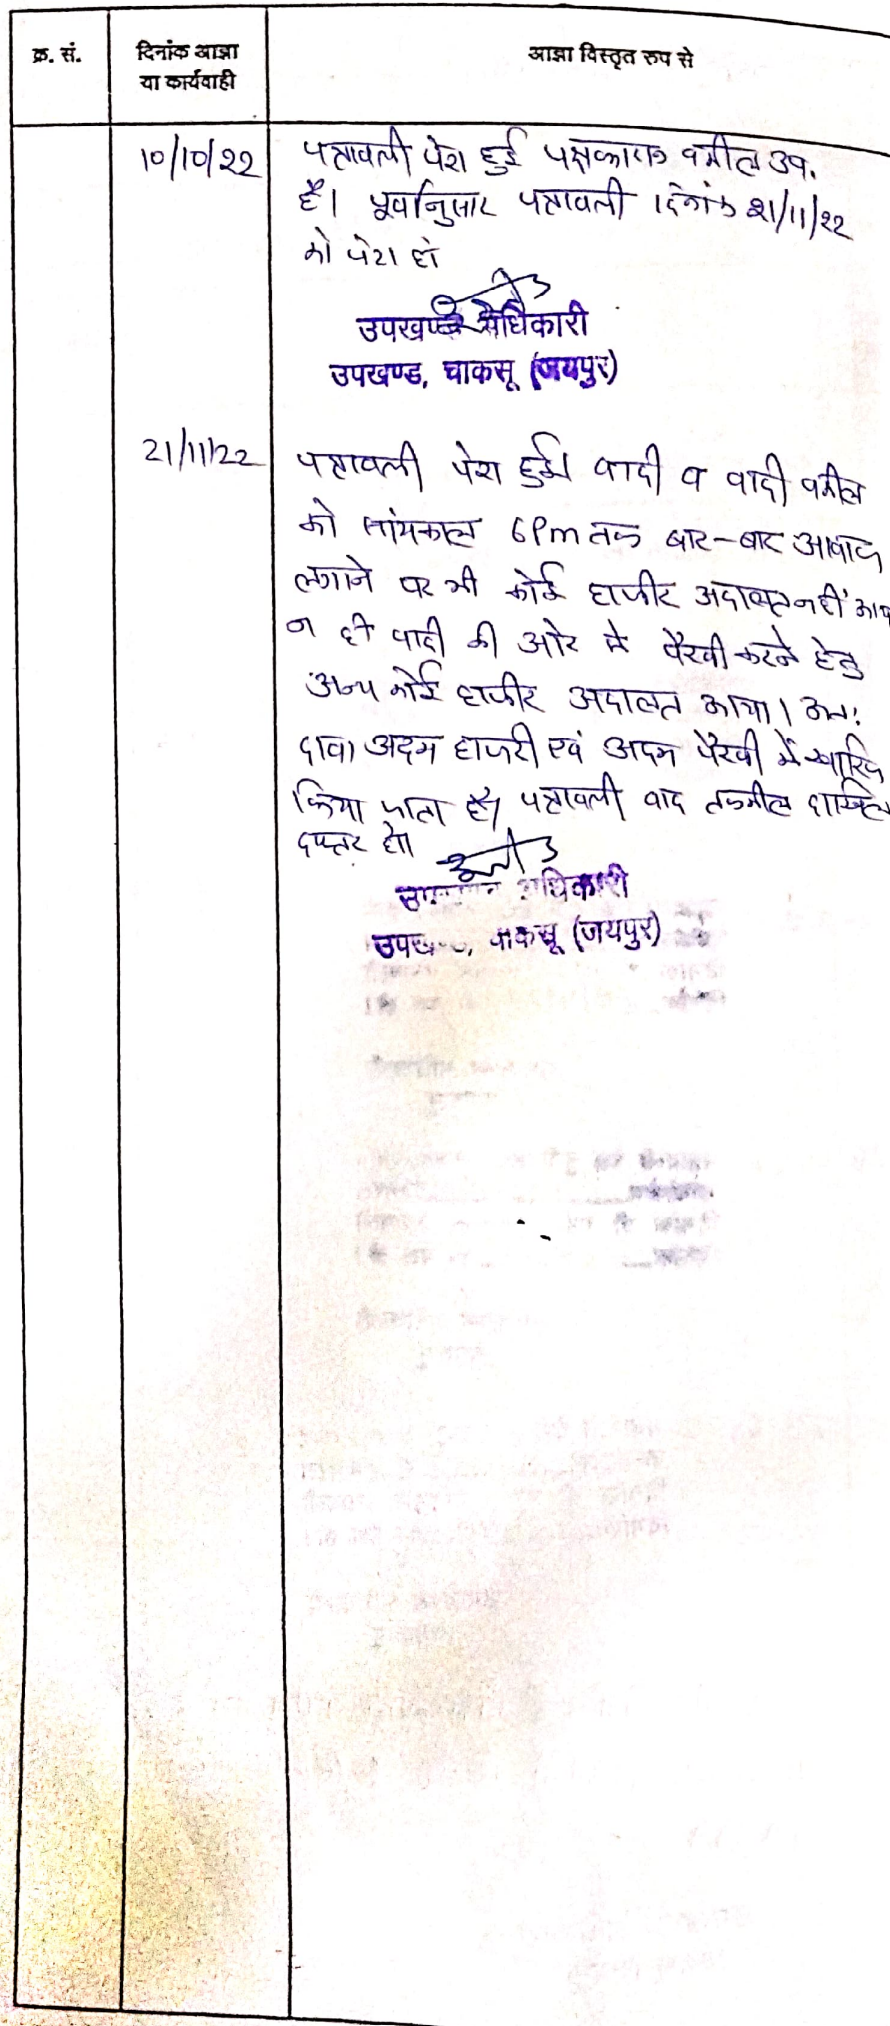 क्र. सं.
दिनांक आज्ञा
या कार्यवाही
आज्ञा विस्तृत रुप से
10/10/22
पत्रावली पेश हुई पक्षकारान वकील उप.
है। पूर्वानुसार पत्रावली दिनांक 21/11/22
को पेश हो
उपखण्ड अधिकारी
उपखण्ड, चाकसू (जयपुर)
21/11/22
पत्रावली पेश हुई। वादी व वादी वकील
को सांयकाल 6Pm तक बार-बार आवाज
लगाने पर भी कोई हाजीर अदालत नहीं आया
न ही वादी की ओर से पैरवी करने हेतु
अन्य कोई हाजीर अदालत आया। अतः
दावा अदम हाजरी एवं अदम पैरवी में खारिज
किया जाता है। पत्रावली बाद तकमील दाखिल
दफ्तर हो।
अधिकारी
चाकसू (जयपुर)